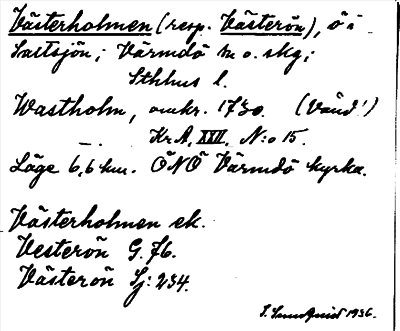 Västerholmen (resp. Västerön), ö i
Saltsjön; Värmdö sn o. skg;
Sthlms l.
Wastholm, omkr. 1730. (Vänd!)
—"— Kr. A, XXII, N:o 15.
Läge 6,6 km. ÖNÖ Värmdö kyrka.
Västerholmen ek.
Vesterön G. 76.
Västerön Sj: 234.
1936.